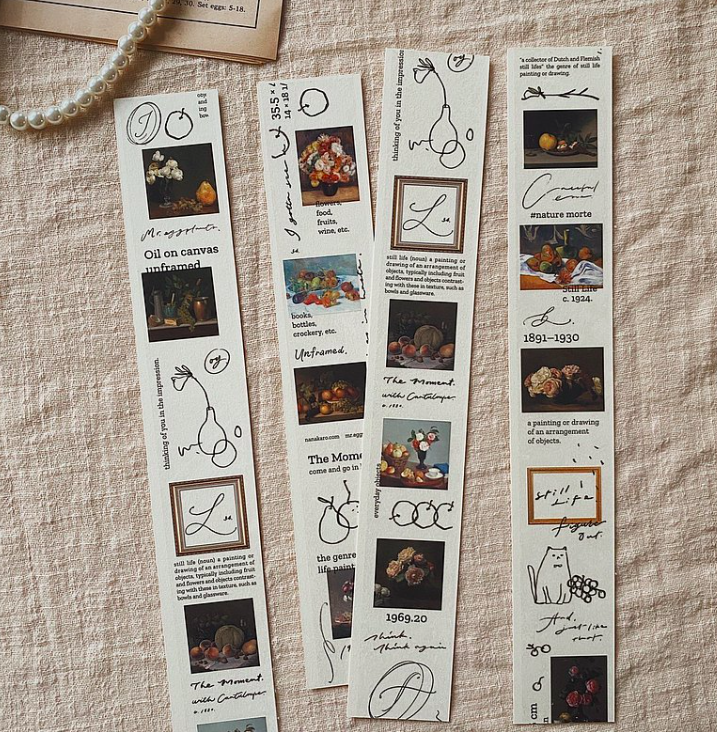 29, 30. Set eggs: 5-18.
and
ing
bow
Mr. eggplants.
Oil on canvas
unframed
thinking of you in the expression.
oy
L
still life (noun) a painting or
drawing of an arrangement of
objects, typically including fruit
and flowers and objects contrast-
ing with these in texture, such as
bowls and glassware.
The Moment.
with Cantaloupe.
35.5 ×
14 × 18 1/
flowers,
food,
fruits,
wine, etc.
books,
bottles,
crockery, etc.
Unframed.
nanakaro.com mr.egg
The Mome
come and go in
the genre
life paint
thinking of you in the impression
oy
L
still life (noun) a painting or
drawing of an arrangement of
objects, typically including fruit
and flowers and objects contrast-
ing with these in texture, such as
bowls and glassware.
The Moment.
with Cantaloupe.
everyday objects
1969.20
think.
think again
"a collector of Dutch and Flemish
still lifes" the genre of still life
painting or drawing.
#nature morte
Still Life
c. 1924.
1891–1930
a painting or drawing
of an arrangement
of objects.
still life
figure
out.
And,
just like
that.
cm